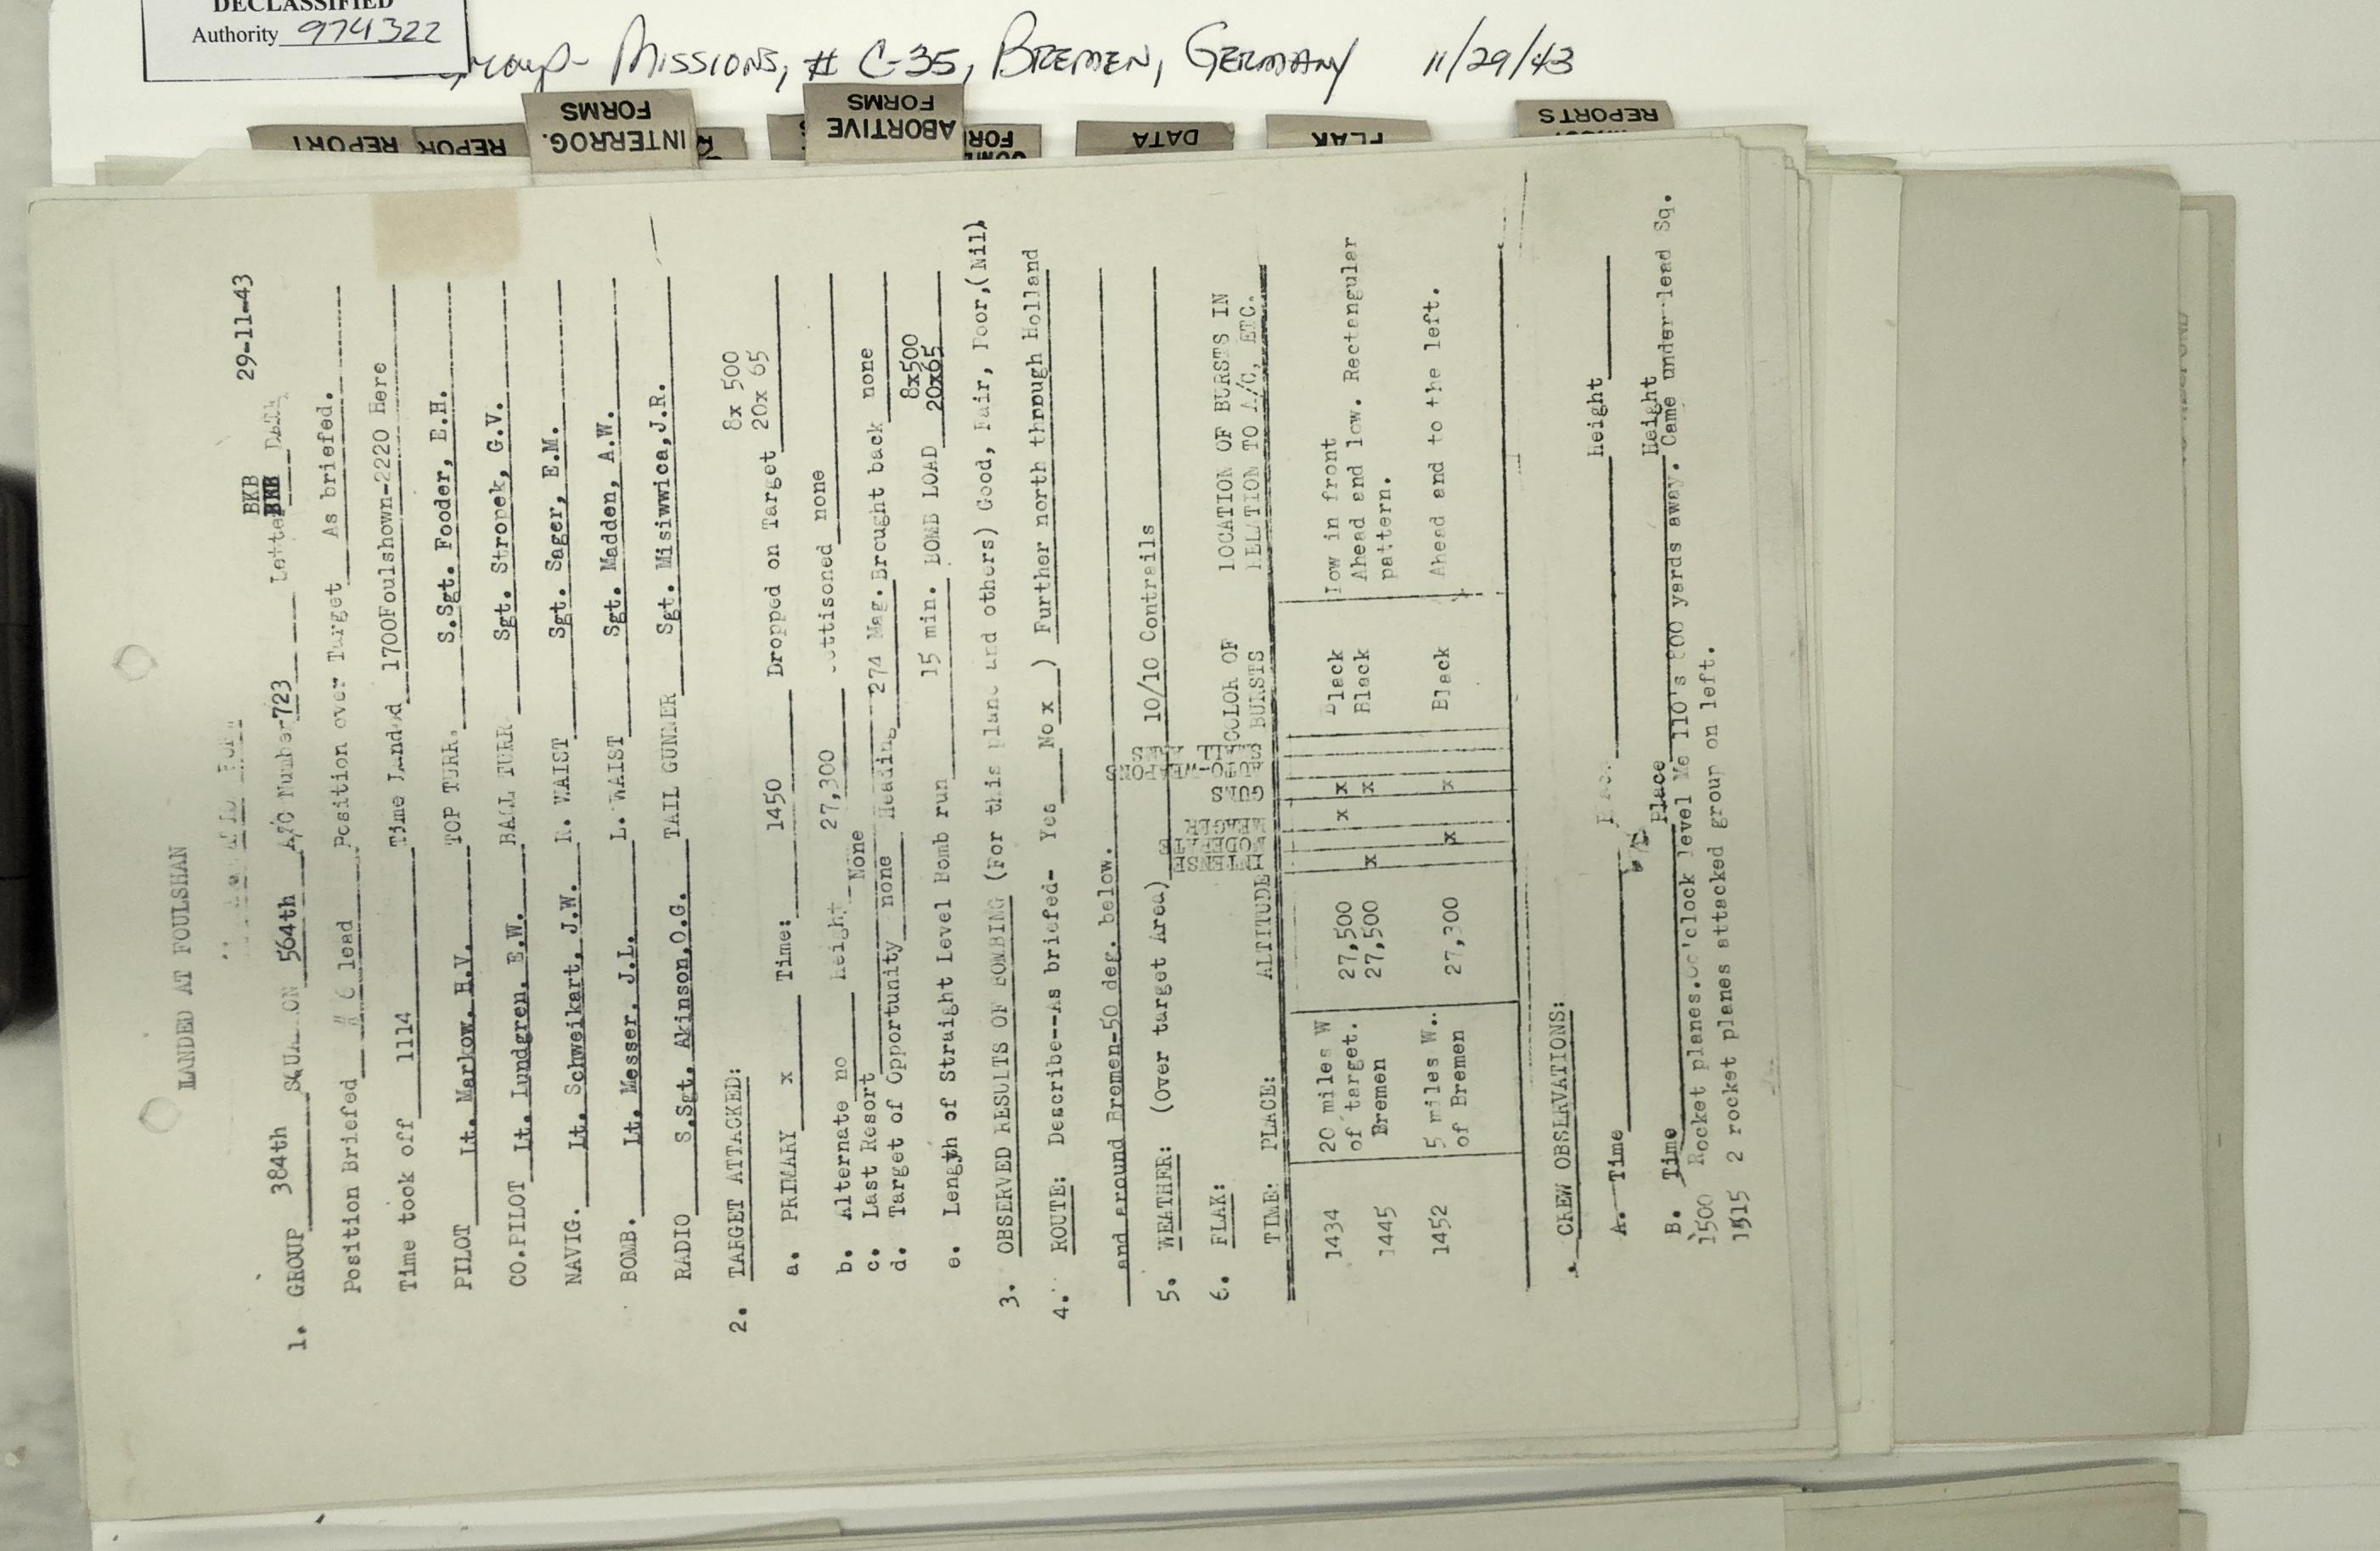 DECLASSIFIED
Authority 974322
Group- MISSIONS, # C-35, BREMEN, GERMANY 11/29/43
REPORT
REPOR
INTERROG.
FORMS
ABORTIVE
FORMS
FOR
DATA
FLAK
REPORTS
LANDED AT FOULSHAN
BKB
1. GROUP 384th SQUADRON 564th A/C Number 723 Letter BKB Date 29-11-43
Position Briefed # 6 lead Position over Target As briefed.
Time took off 1114 Time Landed 1700Foulshown-2220 Here
PILOT Lt. Markow. H.V. TOP TURR. S.Sgt. Fooder, E.H.
CO.PILOT Lt. Lundgren. E.W. BALL TURR. Sgt. Stropek, G.V.
NAVIG. Lt. Schweikart, J.W. R. WAIST Sgt. Sager, E.M.
BOMB. Lt. Messer. J.L. L. WAIST Sgt. Madden, A.W.
RADIO S.Sgt. Akinson,O.G. TAIL GUNNER Sgt. Misiwwica,J.R.
2. TARGET ATTACKED: 8x 500
a. PRIMARY x Time: 1450 Dropped on Target 20x 65
b. Alternate no height 27,300 Jettisoned none
c. Last Resort None
d. Target of Opportunity none Heading 274 Mag. Brought back none
8x500
e. Length of Straight Level Bomb run 15 min. BOMB LOAD 20x65
3. OBSERVED RESULTS OF BOMBING (For this plane and others) Good, Fair, Poor,(Nil)
4. ROUTE: Describe--As briefed- Yes No x ) Further north thrpugh Holland
and around Bremen-50 deg. below.
5. WEATHER: (Over target Area) 10/10 Contrails
6. FLAK:
TIME: PLACE: ALTITUDE INTENSE MODERATE MEAGER GUNS AUTO-WEAPONS COLOR OF BURSTS LOCATION OF BURSTS IN RELATION TO A/C, ETC.
1434 20 miles W of target. 27,500 x x Black Low in front
1445 Bremen 27,500 x x Black Ahead and low. Rectangular pattern.
1452 5 miles W.. of Bremen 27,300 x x Black Ahead and to the left.
CREW OBSERVATIONS:
A. Time Place height
B. Time Place Height
1500 Rocket planes.6o'clock level Me 110's 800 yards away. Came under lead Sq.
1515 2 rocket planes attacked group on left.